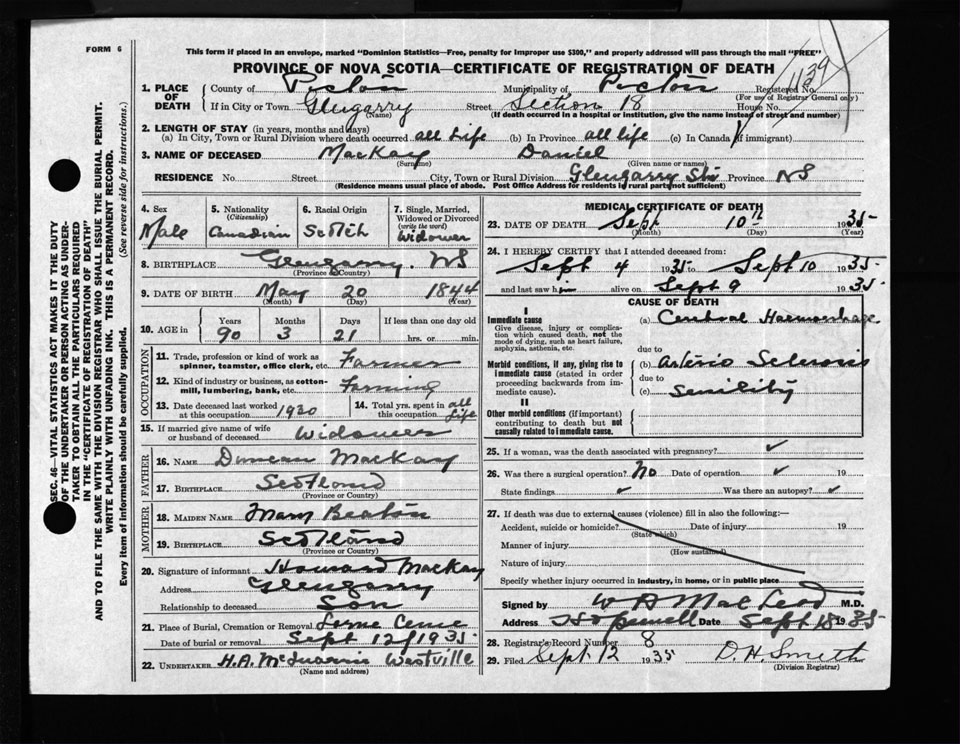 FORM 6
This form if placed in an envelope, marked "Dominion Statistics—Free, penalty for improper use $300," and properly addressed will pass through the mail "FREE"
PROVINCE OF NOVA SCOTIA—CERTIFICATE OF REGISTRATION OF DEATH
1139
1. PLACE OF DEATH
County of Pictou Municipality of Pictou Registered No.
(For use of Registrar General only)
If in City or Town Glengarry Street Section 18 House No.
(Name) (If death occurred in a hospital or institution, give the name instead of street and number)
2. LENGTH OF STAY (in years, months and days)
(a) In City, Town or Rural Division where death occurred all Life (b) In Province all life (c) In Canada (if immigrant)
3. NAME OF DECEASED MacKay Daniel
(Surname) (Given name or names)
RESIDENCE No. Street City, Town or Rural Division Glengarry Stn Province NS
(Residence means usual place of abode. Post Office Address for residents in rural parts not sufficient)
4. Sex Male
5. Nationality (Citizenship) Canadian
6. Racial Origin Scotch
7. Single, Married, Widowed or Divorced (write the word) Widower
8. BIRTHPLACE Glengarry. NS
(Province or Country)
9. DATE OF BIRTH May 20 1844
(Month) (Day) (Year)
10. AGE in Years Months Days If less than one day old
90 3 21 hrs. or min.
OCCUPATION
11. Trade, profession or kind of work as spinner, teamster, office clerk, etc. Farmer
12. Kind of industry or business, as cotton-mill, lumbering, bank, etc. Farming
13. Date deceased last worked at this occupation 1920
14. Total yrs. spent in this occupation all Life
15. If married give name of wife or husband of deceased Widower
FATHER
16. NAME Duncan MacKay
17. BIRTHPLACE Scotland
(Province or Country)
MOTHER
18. MAIDEN NAME Mary Beaton
19. BIRTHPLACE Scotland
(Province or Country)
20. Signature of informant Howard MacKay
Address Glengarry
Relationship to deceased Son
21. Place of Burial, Cremation or Removal Lorne Ceme
Date of burial or removal Sept 12/1935
22. UNDERTAKER H.A. McQuarrie Westville
(Name and address)
MEDICAL CERTIFICATE OF DEATH
23. DATE OF DEATH Sept 10th 1935
(Month) (Day) (Year)
24. I HEREBY CERTIFY that I attended deceased from:
Sept 4 1935 to Sept 10 1935
and last saw him alive on Sept 9 1935
CAUSE OF DEATH
I
Immediate cause
Give disease, injury or complication which caused death, not the mode of dying, such as heart failure, asphyxia, asthenia, etc.
(a) Cerebral Haemorrhage
due to
Morbid conditions, if any, giving rise to immediate cause (stated in order proceeding backwards from immediate cause).
(b) Arterio Sclerosis
due to
(c) Senility
II
Other morbid conditions (if important) contributing to death but not causally related to immediate cause.
25. If a woman, was the death associated with pregnancy? ✓
26. Was there a surgical operation? No Date of operation ✓ 19
State findings ✓ Was there an autopsy? ✓
27. If death was due to external causes (violence) fill in also the following:—
Accident, suicide or homicide? Date of injury 19
(State which)
Manner of injury
(How sustained)
Nature of injury
Specify whether injury occurred in industry, in home, or in public place
Signed by W A MacLeod M.D.
Address Hopewell Date Sept 18 1935
28. Registrar's Record Number 8
29. Filed Sept. 12 1935 D.H. Smith
(Division Registrar)
SEC. 46—VITAL STATISTICS ACT MAKES IT THE DUTY
OF THE UNDERTAKER OR PERSON ACTING AS UNDER-
TAKER TO OBTAIN ALL THE PARTICULARS REQUIRED
IN THE "CERTIFICATE OF REGISTRATION OF DEATH"
AND TO FILE THE SAME WITH THE DIVISION REGISTRAR WHO SHALL ISSUE THE BURIAL PERMIT.
WRITE PLAINLY WITH UNFADING INK. THIS IS A PERMANENT RECORD.
Every item of information should be carefully supplied. (See reverse side for instructions.)